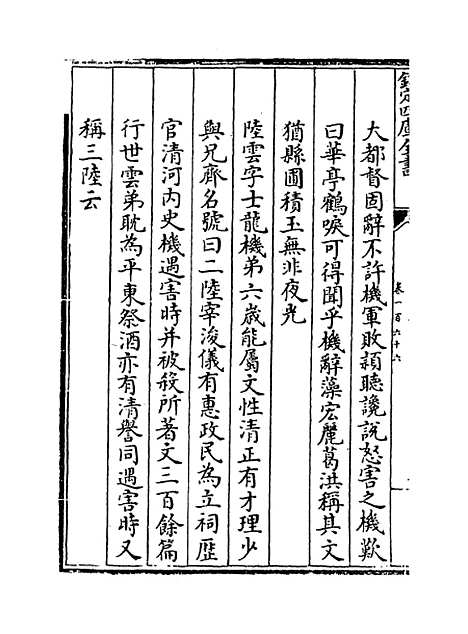 欽定四庫全書
卷一百六十六
大都督固辭不許機軍敗穎聽讒說怒害之機歎
曰華亭鶴唳可得聞乎機辭藻宏麗葛洪稱其文
猶縣圃積玉無非夜光
陸雲字士龍機弟六歲能屬文性清正有才理少
與兄齊名號曰二陸宰浚儀有惠政民為立祠歴
官清河内史機遇害時并被殺所著文三百餘篇
行世雲弟耽為平東祭酒亦有清譽同遇害時又
稱三陸云